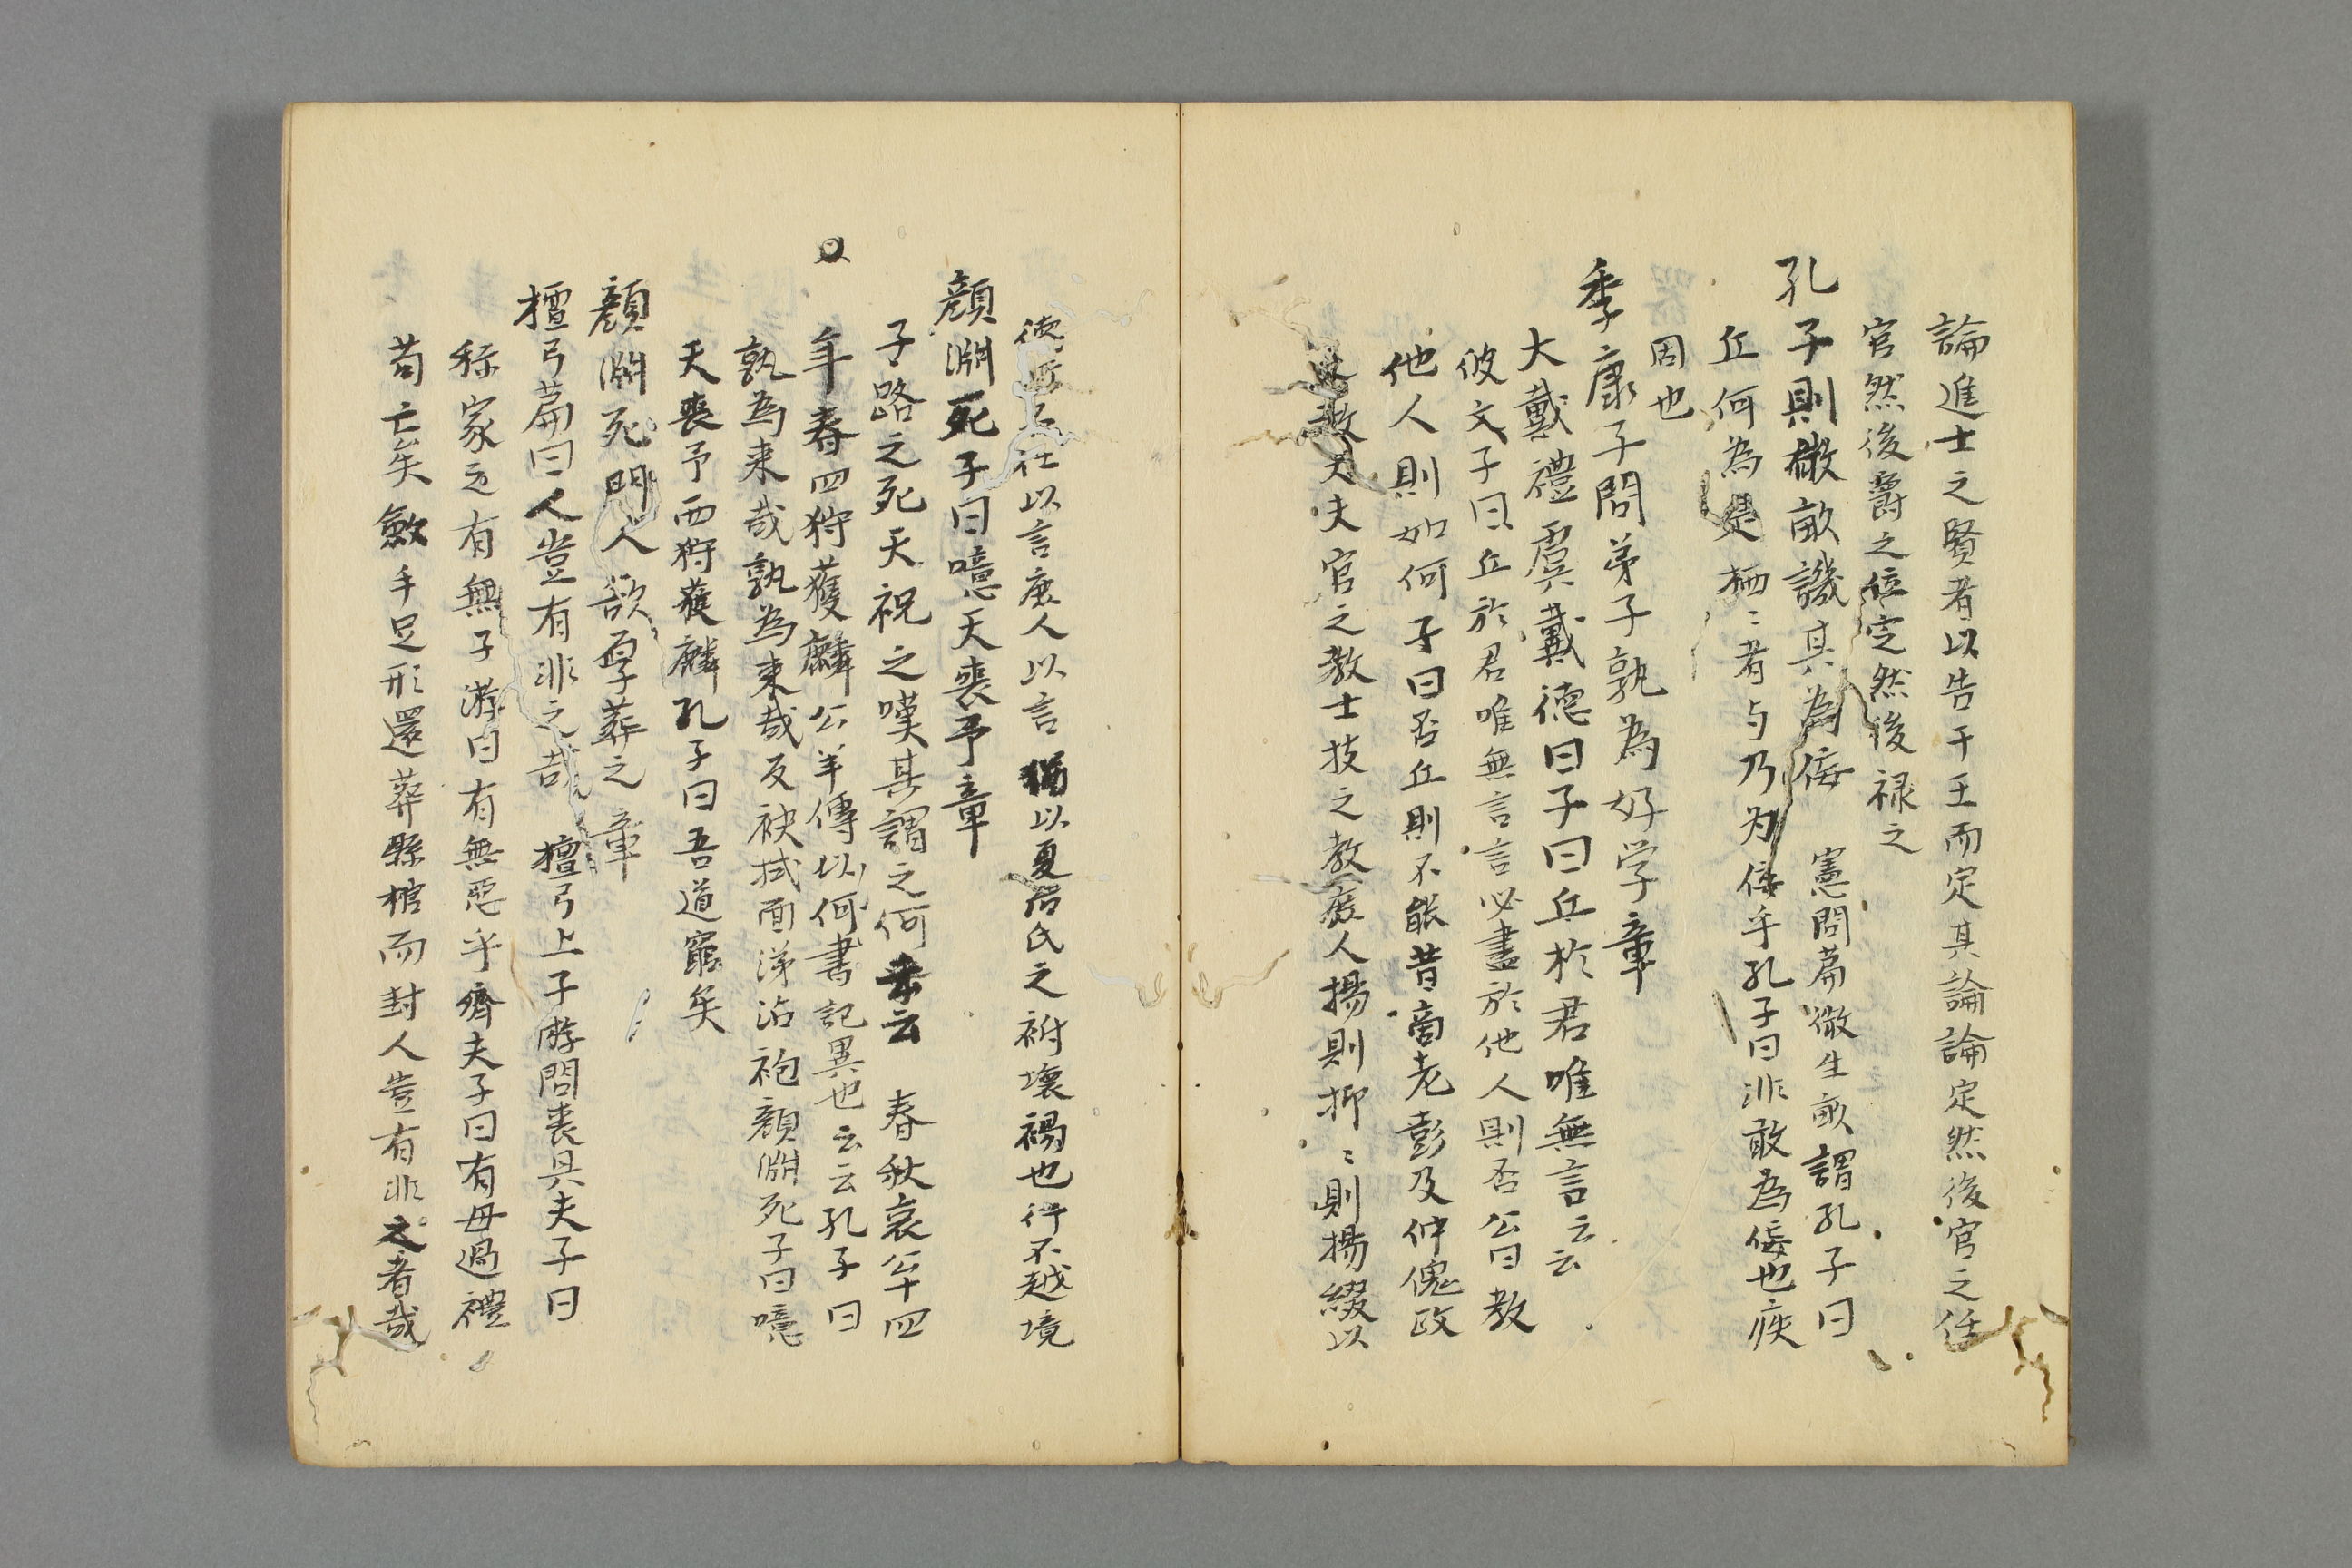 論進士之賢者以告于王而定其論論定然後官之任
官然後爵之位定然後禄之
孔子則微畝譏其為佞　憲問篇微生畝謂孔子曰
丘何為是栖〻者与乃为佞乎孔子曰非敢為佞也疾
固也
季康子問弟子孰為好学章
大戴禮虞戴德曰子曰丘於君唯無言云云
彼文子曰丘於君唯無言言必盡於他人則否公曰教
他人則如何子曰否丘則不能昔商老彭及仲傀政
之教大夫官之教士技之教庶人揚則抑〻則揚綴以
德行不任以言庶人以言猶以夏后氏之祔壞裼也行不越境
顔淵死子曰噫天喪予章
子路之死天祝之嘆其謂之何云　春秋哀公十四
年春西狩獲麟公羊傳以何書記異也云云孔子曰
孰為来哉孰為来哉反袂拭面涕沾袍顔淵死子曰噫
天喪予西狩獲麟孔子曰吾道窮矣
顔淵死門人欲厚葬之章
檀弓篇曰人豈有非之哉　檀弓上子游問喪具夫子曰
稱家之有無子游曰有無惡乎齊夫子曰有毋過禮
苟亡矣斂手足形還葬縣棺而封人豈有非之者哉